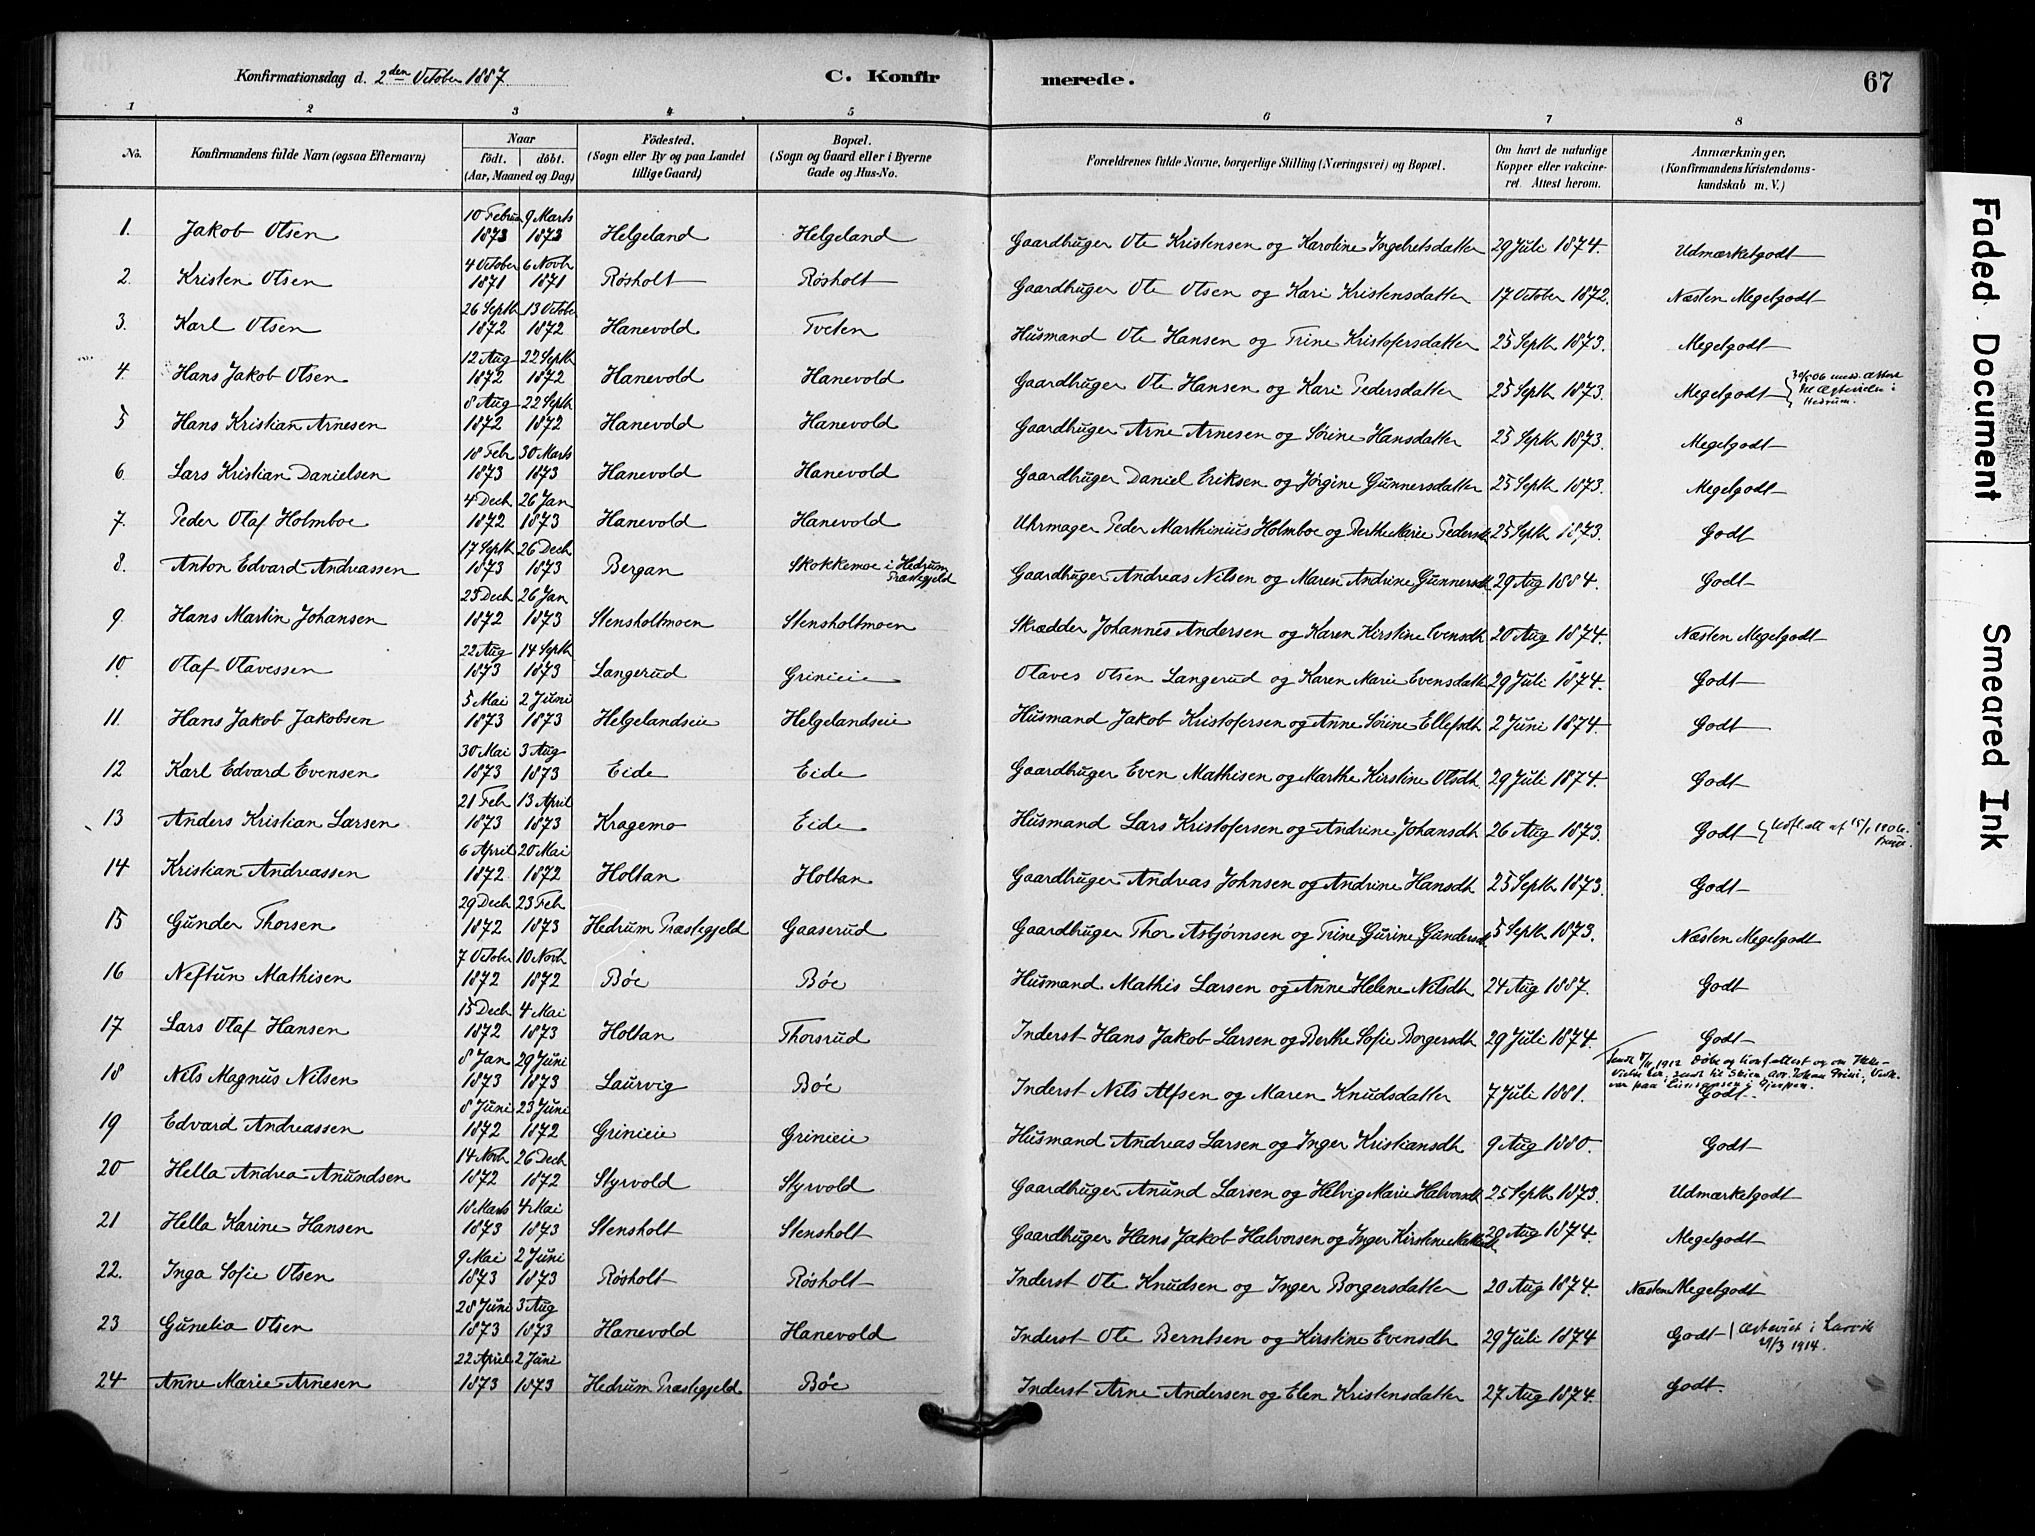 Konfirmationsdag d. 2den October 1887.
C. Konfirmerede.
67
1 2 3 4 5 6 7 8
No.
Konfirmandens fulde Navn (ogsaa Efternavn)
Naar
födt. döbt.
(Aar, Maaned og Dag)
Födested.
(Sogn eller By og paa Landet
tillige Gaard)
Bopæl.
(Sogn og Gaard eller i Byerne
Gade og Hus-No.
Forældrenes fulde Navne, borgerlige Stilling (Næringsvei) og Bopæl.
Om havt de naturlige
Kopper eller vakcine-
ret. Attest herom.
Anmærkninger.
(Konfirmandens Kristendoms-
kundskab m. V.)
1. Jakob Olsen 10 Februa 1873 9 Marts 1873 Helgeland Helgeland Gaardbruger Ole Kristensen og Karoline Ingebretsdatter 29 Juli 1874. Udmærketgodt
2. Kristen Olsen 4 October 1871 6 Novb 1871 Røsholt Røsholt Gaardbruger Ole Olsen og Kari Kristensdatter 17 October 1872. Næsten Megetgodt
3. Karl Olsen 26 Septb 1872 13 Octobe 1872 Hanevold Tveten Husmand Ole Hansen og Trine Kristofersdatter 25 Septb 1873. Megetgodt
4. Hans Jakob Olsen 12 Aug 1872 22 Septb 1872 Hanevold Hanevold Gaardbruger Ole Hansen og Kari Pedersdatter 25 Septb 1873. Megetgodt
Hedrum.
5 Hans Kristian Arnesen 8 Aug 1872 22 Septb 1872 Hanevold Hanevold Gaardbruger Arne Arnesen og Sørine Hansdatter 25 Septb 1873. Megetgodt
6. Lars Kristian Danielsen 18 Feb 1873 30 Marts 1873 Hanevold Hanevold Gaardbruger Daniel Eriksen og Jørgine Gunnersdatter 25 Septb 1873. Megetgodt
7. Peder Olaf Holmboe 4 Decb 1872 26 Jan 1873 Hanevold Hanevold Uhrmager Peder Marthinius Holmboe og Berthe Marie Pedersdt 25 Septb 1873. Godt
8. Anton Edvard Andreassen 17 Septb 1873 26 Decb 1873 Bergan Skokkemoe i Hedrum Præstegjeld Gaardbruger Andreas Nilsen og Maren Andrine Gunnersdt 29 Aug 1884. Godt
9 Hans Martin Johansen 25 Decb 1872 26 Jan 1873 Stensholtmoen Stensholtmoen Skrædder Johannes Andersen og Karen Kirstine Evensdt 20 Aug 1874. Næsten Megetgodt
10. Olaf Olavessen 22 Aug 1873 14 Septb 1873 Langerud Grinieie Olaves Olsen Langerud og Karen Marie Evensdatt 29 Juli 1874. Godt
11. Hans Jakob Jakobsen 5 Mai 1873 2 Juni 1873 Helgelandseie Helgelandseie Husmand Jakob Kristofersen og Anne Sørine Ellefsdt 2 Juni 1874. Godt
12 Karl Edvard Evensen 30 Mai 1873 3 Aug 1873 Eide Eide Gaardbruger Even Mathisen og Marthe Kirstine Olsdt. 29 Juli 1874. Godt
13 Anders Kristian Larsen 21 Feb 1873 13 April 1873 Kragemo Eide Husmand Lars Kristofersen og Andrine Johansdt 26 Aug 1873. Godt
14 Kristian Andreassen 6 April 1872 20 Mai 1872 Holtan Holtan Gaardbruger Andreas Johnsen og Andrine Hansdt 25 Septb 1873. Godt
15 Gunder Thorsen 29 Decb 1872 23 Feb 1873 Hedrum Præstegjeld Gaaserud Gaardbruger Thor Asbjørnsen og Trine Gurine Gundersdt 5 Septb 1873. Næsten Megetgodt
16 Neftun Mathisen 7 October 1872 10 Novb 1872 Bøe Bøe Husmand Mathis Larsen og Anne Helene Nilsdt 24 Aug 1887. Godt
17 Lars Olaf Hansen 15 Decb 1872 4 Mai 1873 Holtan Thorsrud Inderst Hans Jakob Larsen og Berthe Sofie Borgersdt 29 Juli 1874. Godt
18 Nils Magnus Nilsen 8 Jan 1873 29 Juni 1873 Laurvig Bøe Inderst Nils Alfsen og Maren Knudsdatter 7 Juli 1881. Godt.
19 Edvard Andreassen 8 Juni 1872 23 Juni 1872 Grinieie Grinieie Husmand Andreas Larsen og Inger Kristiansdt 9 Aug 1880. Godt
20 Hella Andrea Anundsen 14 Novb 1872 26 Decb 1872 Styrvold Styrvold Gaardbruger Anund Larsen og Helvig Marie Halvorsdt 25 Septb 1873. Udmærketgodt
21 Hella Karine Hansen 18 Marts 1873 4 Mai 1873 Stensholt Stensholt Gaardbruger Hans Jakob Halvorsen og Inger Kirstine 20 Aug 1874. Megetgodt
22. Inga Sofie Olsen 9 Mai 1873 2 Juni 1873 Røsholt Røsholt Inderst Ole Knudsen og Inger Borgersdatter 20 Aug 1874. Næsten Megetgodt
23 Gunelia Olsen 28 Juni 1873 3 Aug 1873 Hanevold Hanevold Inderst Ole Berntsen og Kirstine Evensdt 29 Juli 1874 Godt Ægteviet i Larvik
1914.
24 Anne Marie Arnesen 22 April 1873 2 Juni 1873 Hedrum Præstegjeld Bøe Inderst Arne Andersen og Elen Kristensdatter 27 Aug 1874. Godt.
Faded Document
Smeared Ink